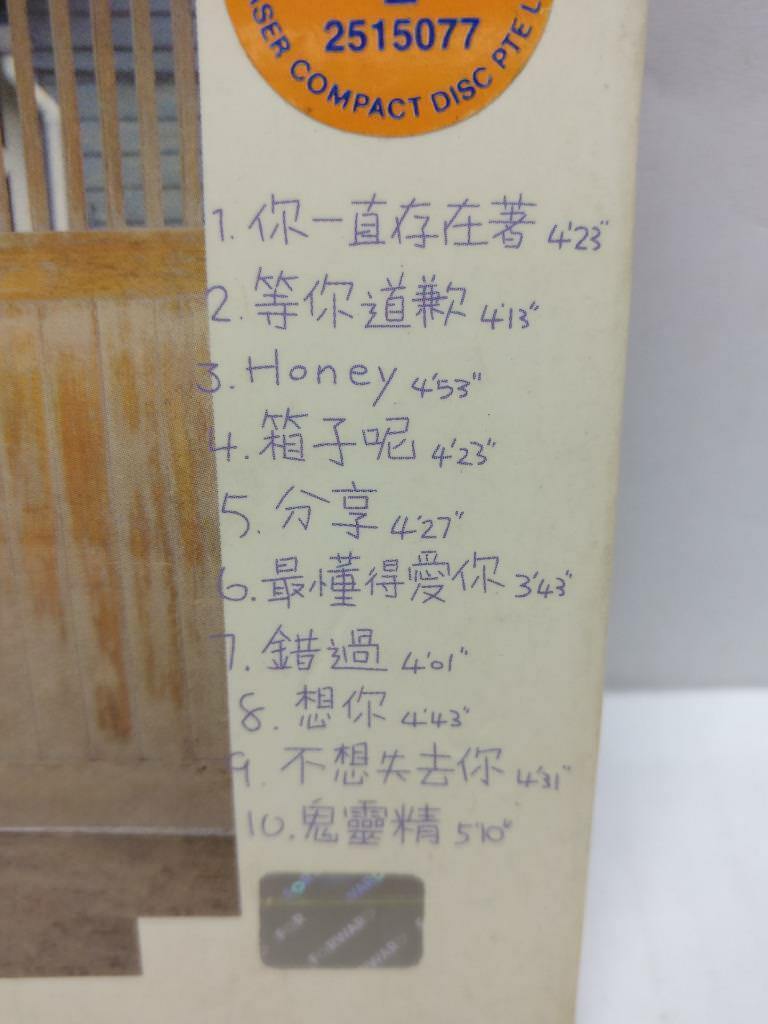 2515077
ASER COMPACT DISC PTE L
1. 你一直存在著 4'23"
2. 等你道歉 4'13"
3. Honey 4'53"
4. 箱子呢 4'23"
5. 分享 4'27"
6. 最懂得愛你 3'43"
7. 錯過 4'01"
8. 想你 4'43"
9. 不想失去你 4'31"
10. 鬼靈精 5'10"
FORWARD